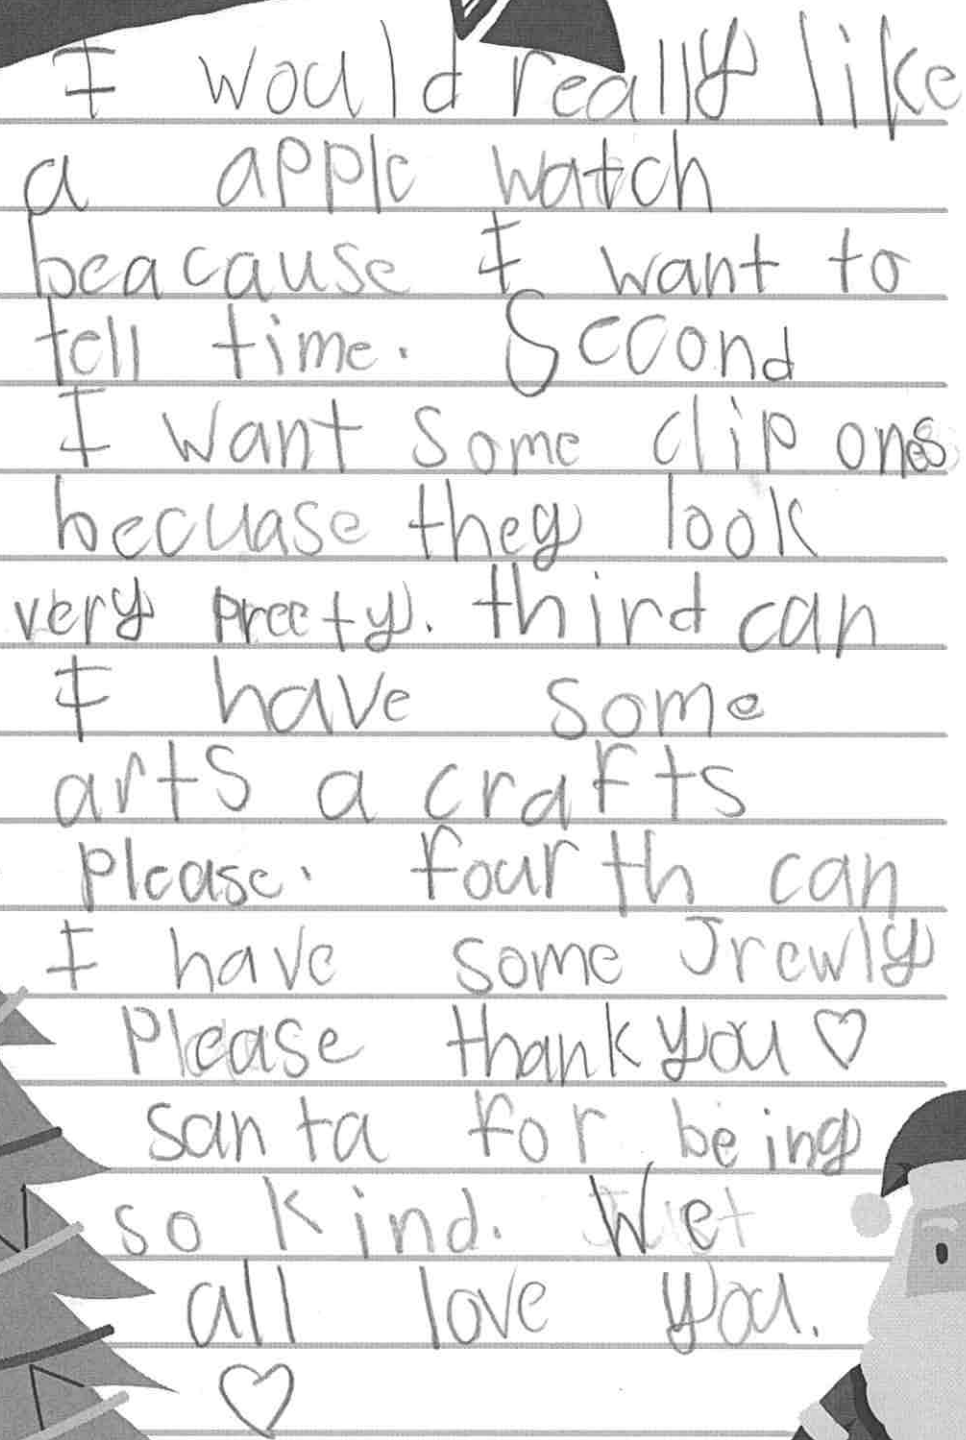 I would really like
a apple watch
beacause I want to
tell time. Second
I want some clip ones
becuase they look
very preety. third can
I have some
arts a crafts
please. fourth can
I have some Jrewly
Please thank you ♡
santa for being
so kind. We
all love you.
♡